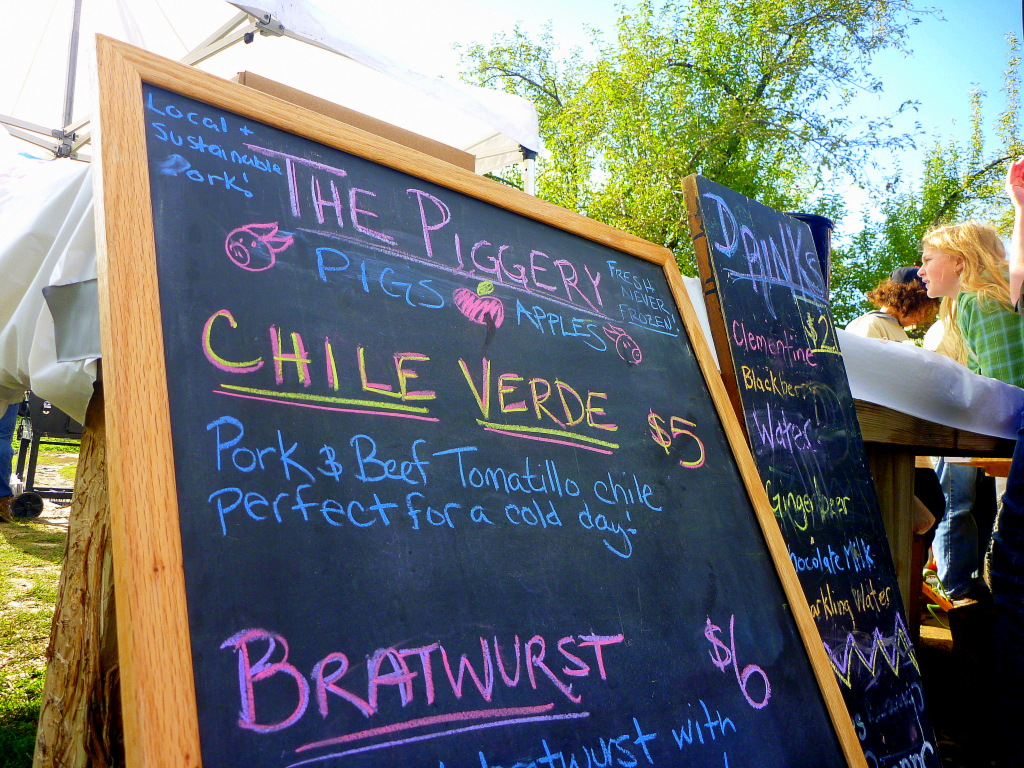 Local +
Sustainable
Pork!
THE PIGGERY
PIGS APPLES
FRESH
NEVER
FROZEN!
CHILE VERDE $5
Pork & Beef Tomatillo chile
perfect for a cold day!
BRATWURST $6
bratwurst with
DRINKS
$2
Clementine
Blackberry
Water
Ginger beer
hocolate Milk
arkling Water